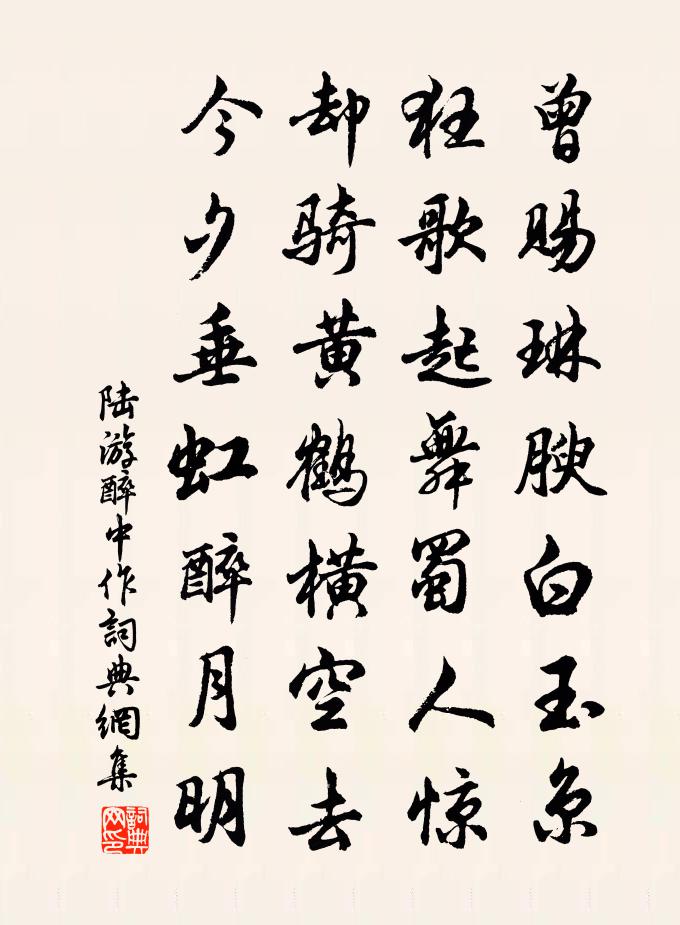 曾赐琳腴白玉京
狂歌起舞蜀人惊
却骑黄鹤横空去
今夕垂虹醉月明
陆游醉中作詞典網集
詞典网印